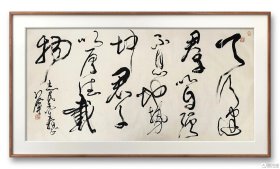 天行健
君子以自强
不息地勢
坤君子
以厚德載
物